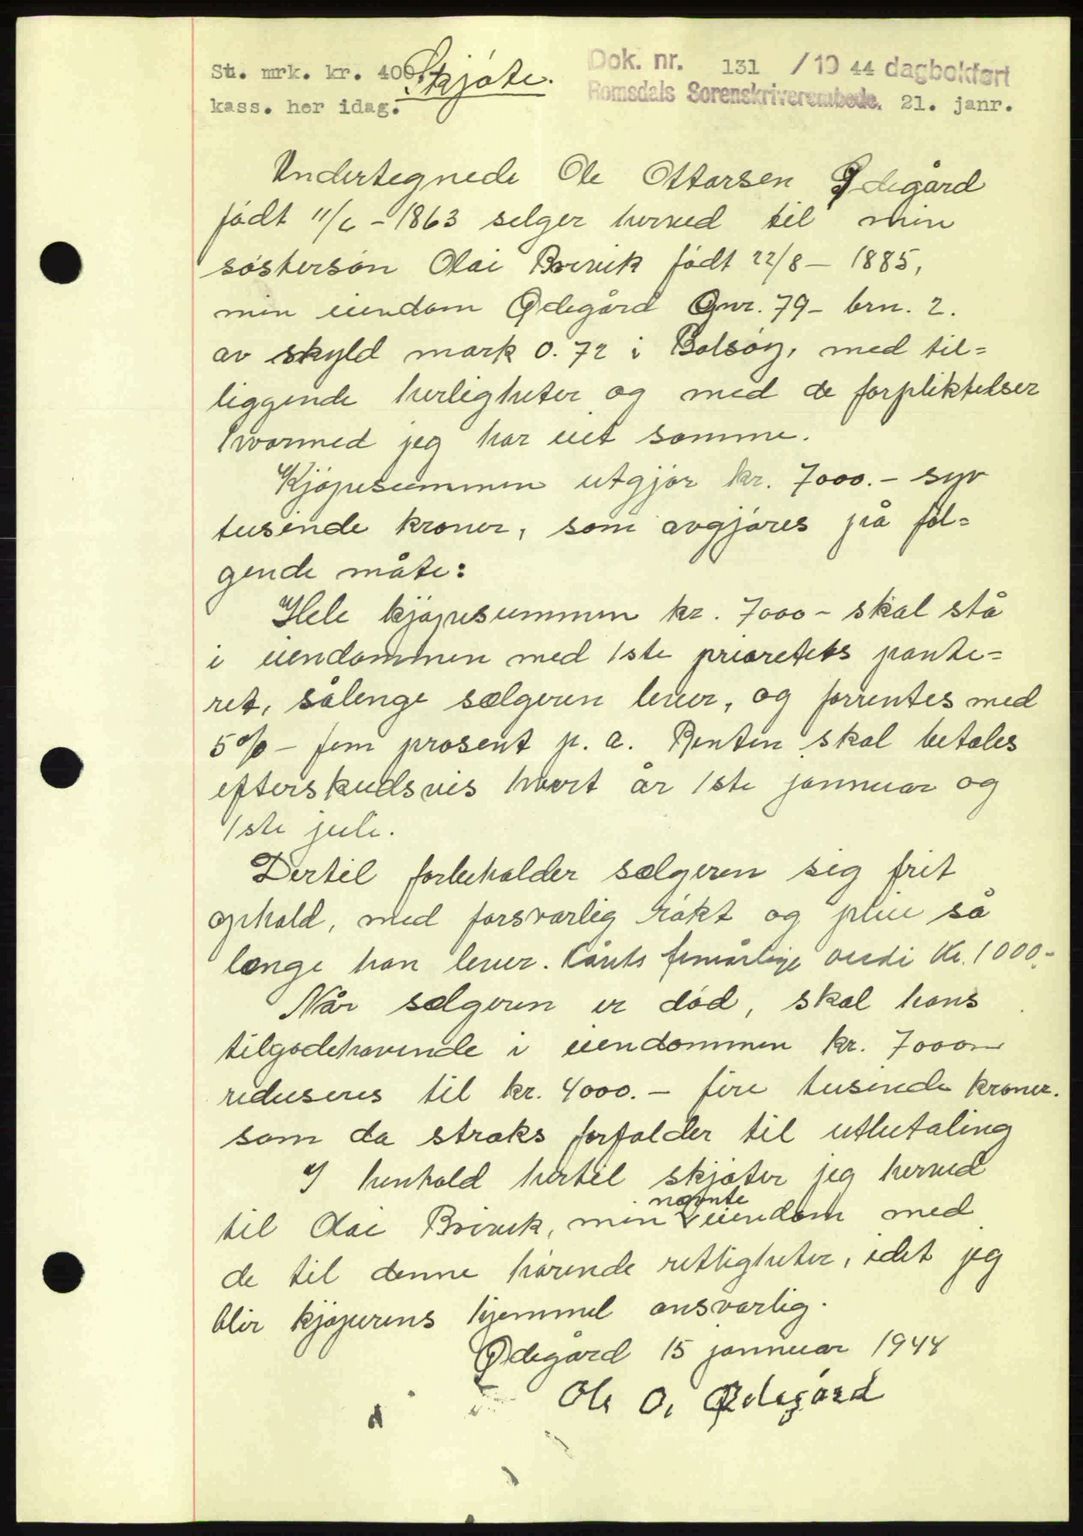 St. mrk. kr. 400.-
kass. her idag.
Skjøte.
Dok. nr. 131 / 19 44 dagbokført
Romsdals Sorenskriverembede. 21. janr.
Undertegnede Ole Ottarsen Ødegård
født 11/6 - 1863 selger herved til min
søstersøn Olai Brevik født 22/8 - 1885,
min eiendom Ødegård Gnr. 79 - brn. 2.
av skyld mark 0.72 i Bolsøy, med til=
liggende herligheter og med de forpliktelser
hvormed jeg har eiet samme.
Kjøpesummen utgjør kr. 7000.- syv
tusinde kroner, som avgjøres på føl=
gende måte:
Hele kjøpesummen kr. 7000 - skal stå
i eiendommen med 1ste prioretets pante=
ret, sålenge sælgeren lever, og forrentes med
5% - fem prosent p. a. Renten skal betales
efterskudsvis hvert år 1ste jannuar og
1ste juli.
Dertil forbeholder sælgeren sig frit
ophold, med forsvarlig røkt og pleie så
længe han lever. Kårets femårlige verdi kr. 1000.-
Når sælgeren er død, skal hans
tilgodehavende i eiendommen kr. 7000 -
reduseres til kr. 4000. - fire tusinde kroner.
som da straks forfalder til utbetaling
I henhold hertil skjøter jeg herved
til Olai Brevik, min nævnte eiendom med
de til denne hørende rettigheter, idet jeg
blir kjøperens hjemmel ansvarlig.
Ødegård 15 jannuar 1944
Ole O. Ødegård